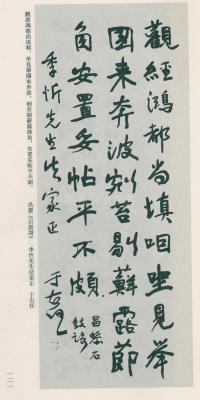 觀經鴻都尚填咽坐見舉
國來奔波剜苔剔蘚露節
角安置妥帖平不頗
昌黎石
鼓詩
季忻先生法家正
于右任
觀經鴻都尚填咽，坐見舉國來奔波。剜苔剔蘚露節角，安置妥帖平不頗。
昌黎《石鼓詩》 季忻先生法家正 于右任